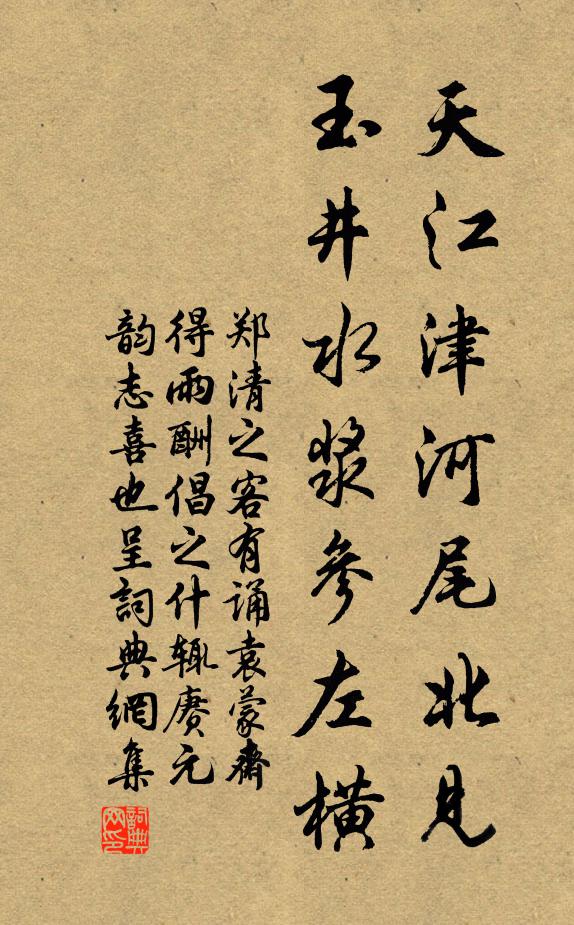 天江津河尾北見
玉井水漿參左橫
郑清之客有诵袁蒙齋
得雨酬倡之什辄赓元
韵志喜也呈詞典網集
詞典网印